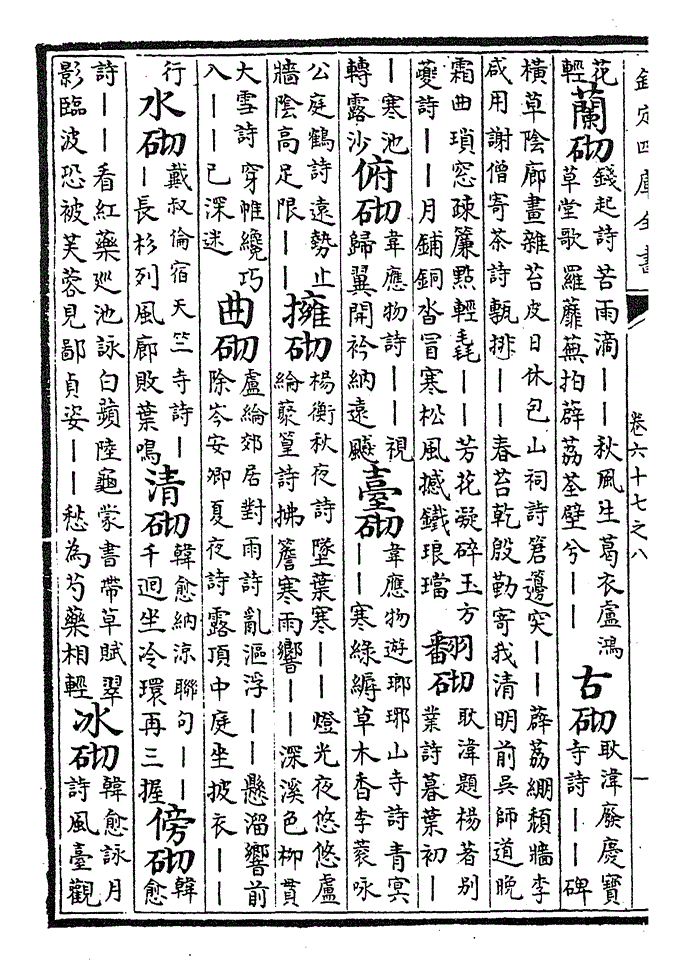 欽定四庫全書
卷六十七之八
花
輕
蘭砌
錢起詩苦雨滴——秋風生葛衣盧鴻
草堂歌羅蘼蕪拍薜荔荃壁兮——
古砌
耿湋廢慶寶
寺詩——碑
橫草陰廊畫雜苔皮日休包山祠詩窘邊突——薜荔繃頹牆李
咸用謝僧寄茶詩甎排——春苔乾殷勤寄我清明前吳師道晚
霜曲瑣窓疎簾點輕毳——芳花凝碎玉方
夔詩——月鋪銅沓冒寒松風撼鐵琅璫
翻砌
耿湋題楊著別
業詩暮葉初—
—寒池
轉露沙
俯砌
韋應物詩——視
歸翼開衿納遠飈
臺砌
韋應物遊瑯琊山寺詩青冥
——寒綠縟草木香李蔆咏
公庭鶴詩遠勢止
牆陰高足限——
擁砌
楊衡秋夜詩墜葉寒——燈光夜悠悠盧
綸藂篁詩拂簷寒雨響——深溪色柳貫
大雪詩穿帷纔巧
入——已深迷
曲砌
盧綸郊居對雨詩亂漚浮——懸溜響前
除岑安卿夏夜詩露頂中庭坐披衣——
行
水砌
戴叔倫宿天竺寺詩—
—長杉列風廊敗葉鳴
清砌
韓愈納涼聯句——
千迴坐冷環再三握
傍砌
韓
愈
詩——看紅藥巡池詠白蘋陸龜蒙書帶草賦翠
影臨波恐被芙蓉見鄙貞姿——愁為芍藥相輕
冰砌
韓愈詠月
詩風臺觀